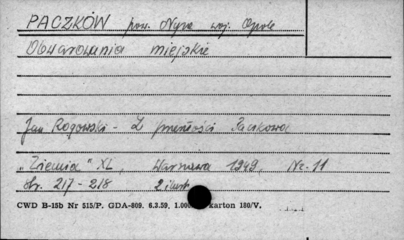 PACZKÓW pow. Nysa woj. Opole
Obwarowania miejskie
Jan Rogowski - Z przeszłości Paczkowa
"Ziemia" XL, Warszawa 1949, Nr. 11
str. 217 - 218 2 ilustr.
CWD B-15b Nr 515/P. GDA-809. 6.3.59, 1.000 karton 180/V.